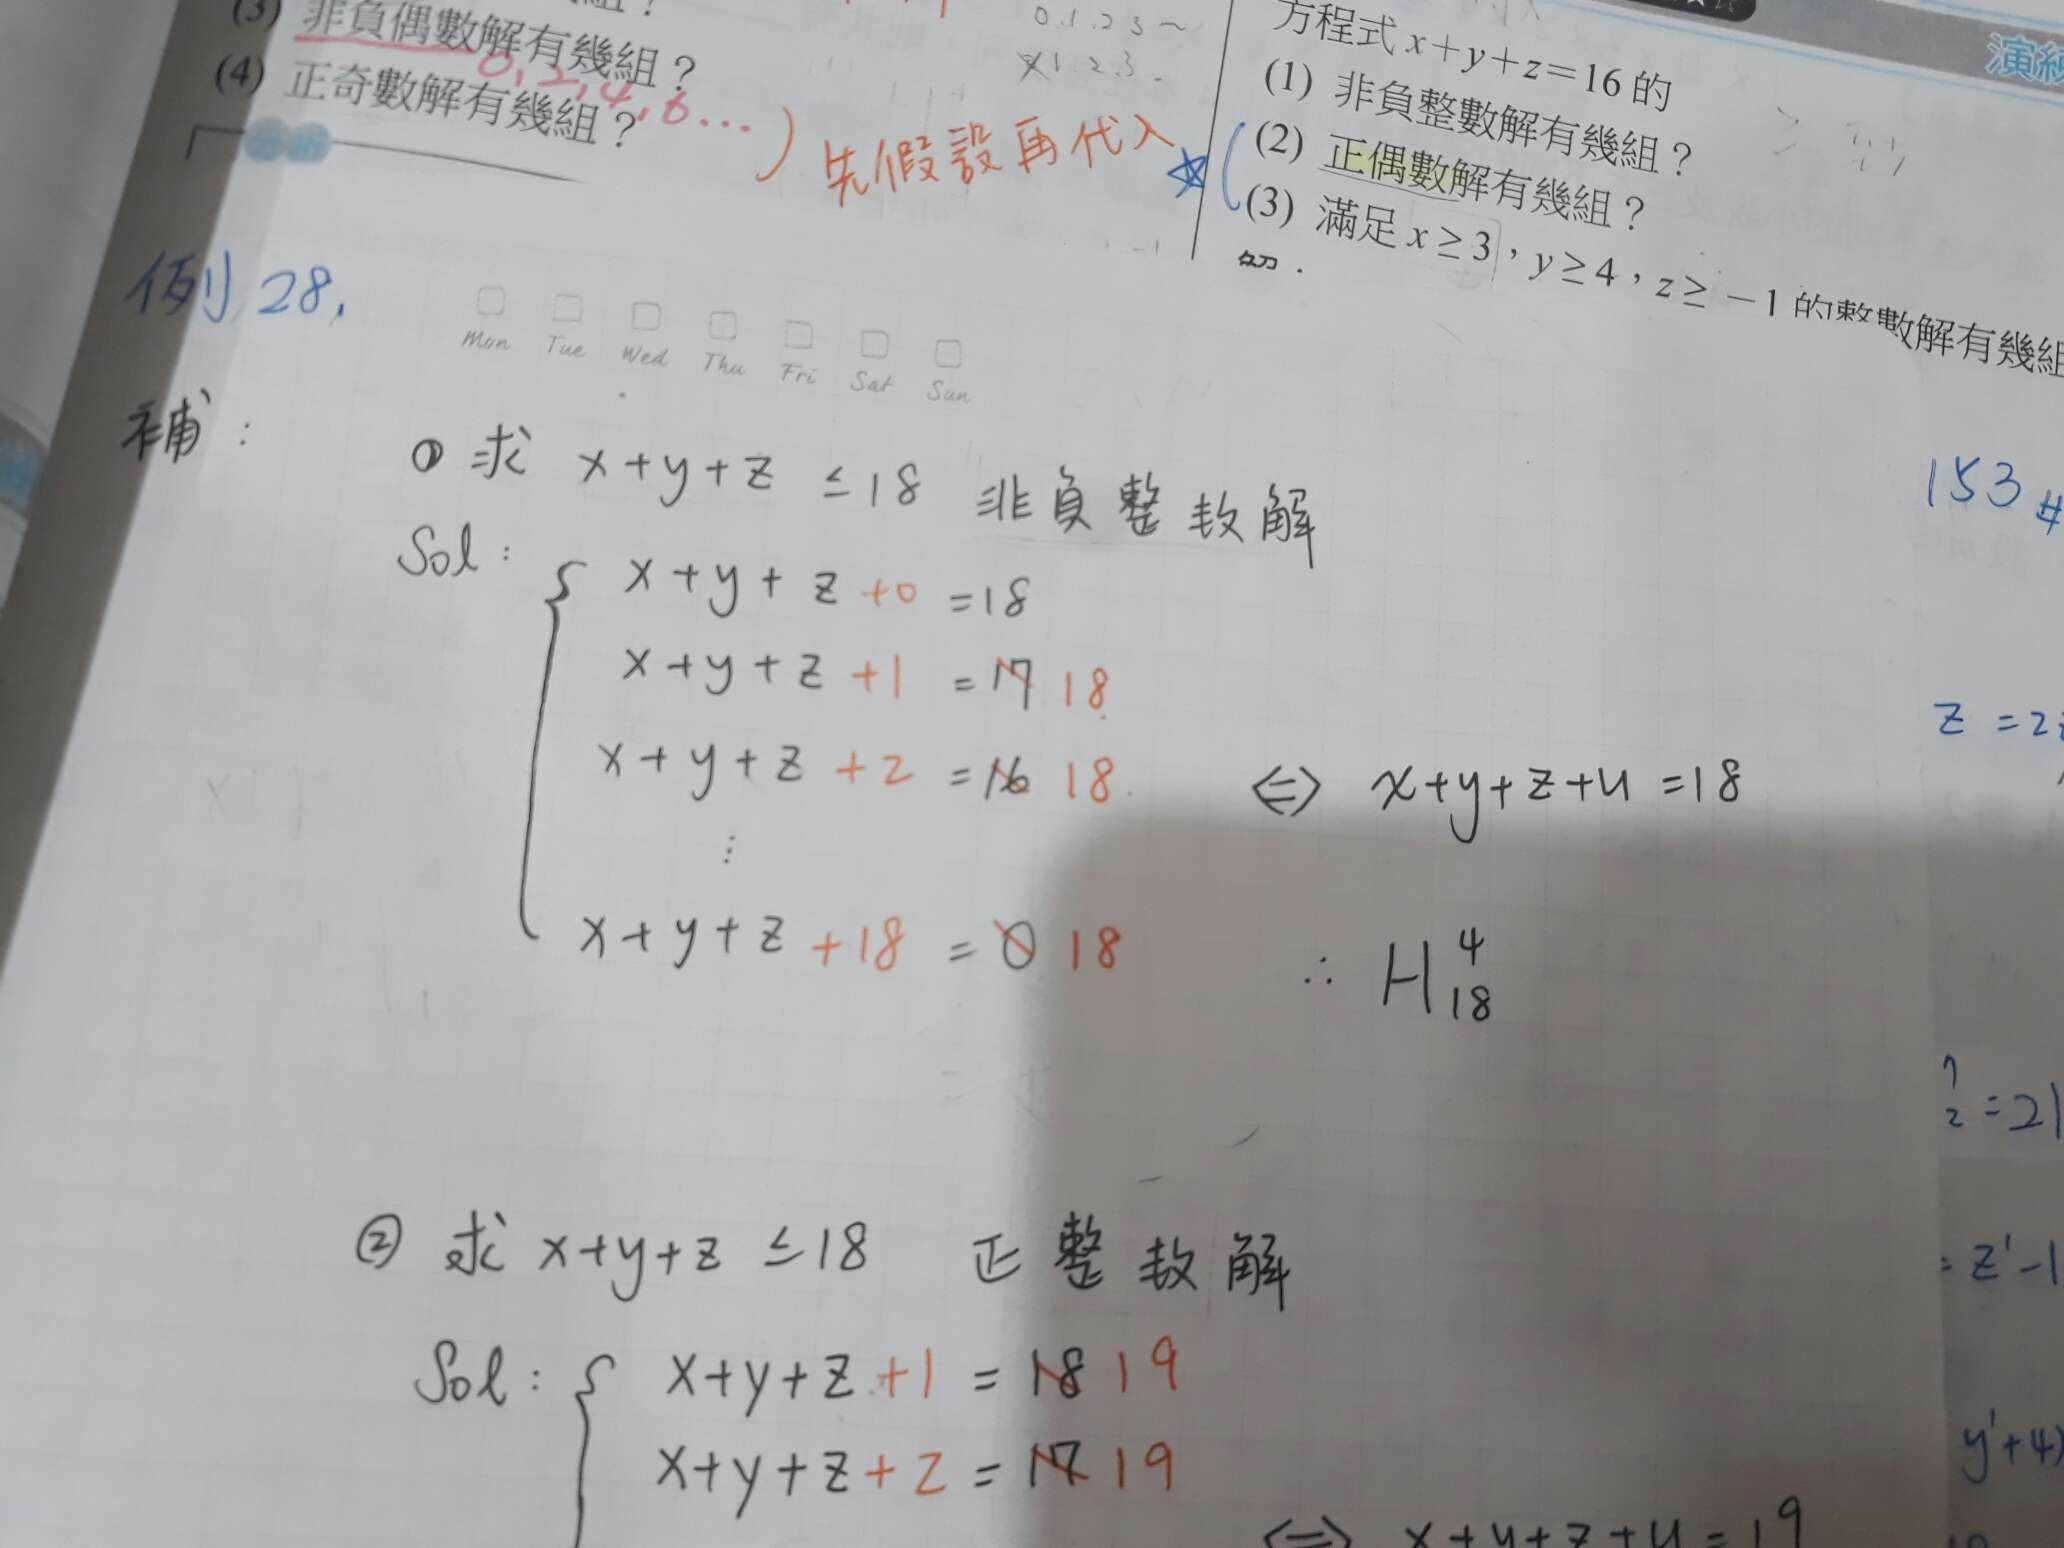 (3) 非負偶數解有幾組？
0, 2, 4, 6...
(4) 正奇數解有幾組？
先假設再代入
0.1.2.3～
1.2.3.
演練
方程式 x+y+z=16 的
(1) 非負整數解有幾組？
(2) 正偶數解有幾組？
(3) 滿足 x≥3，y≥4，z≥－1 的整數解有幾組
例 28.
Mon Tue Wed Thu Fri Sat Sun
補：
① 求 x+y+z ≤18 非負整數解
Sol：
x+y+z+0 =18
x+y+z+1 =17 18
x+y+z+2 =16 18
⋮
x+y+z+18 =0 18
⇔ x+y+z+u =18
∴ H⁴₁₈
② 求 x+y+z ≤18 正整數解
Sol：
x+y+z+1 = 18 19
x+y+z+2 = 17 19
⇔ x+y+z+u=19
153 #
z =2
=21
= z'-1
y'+4)